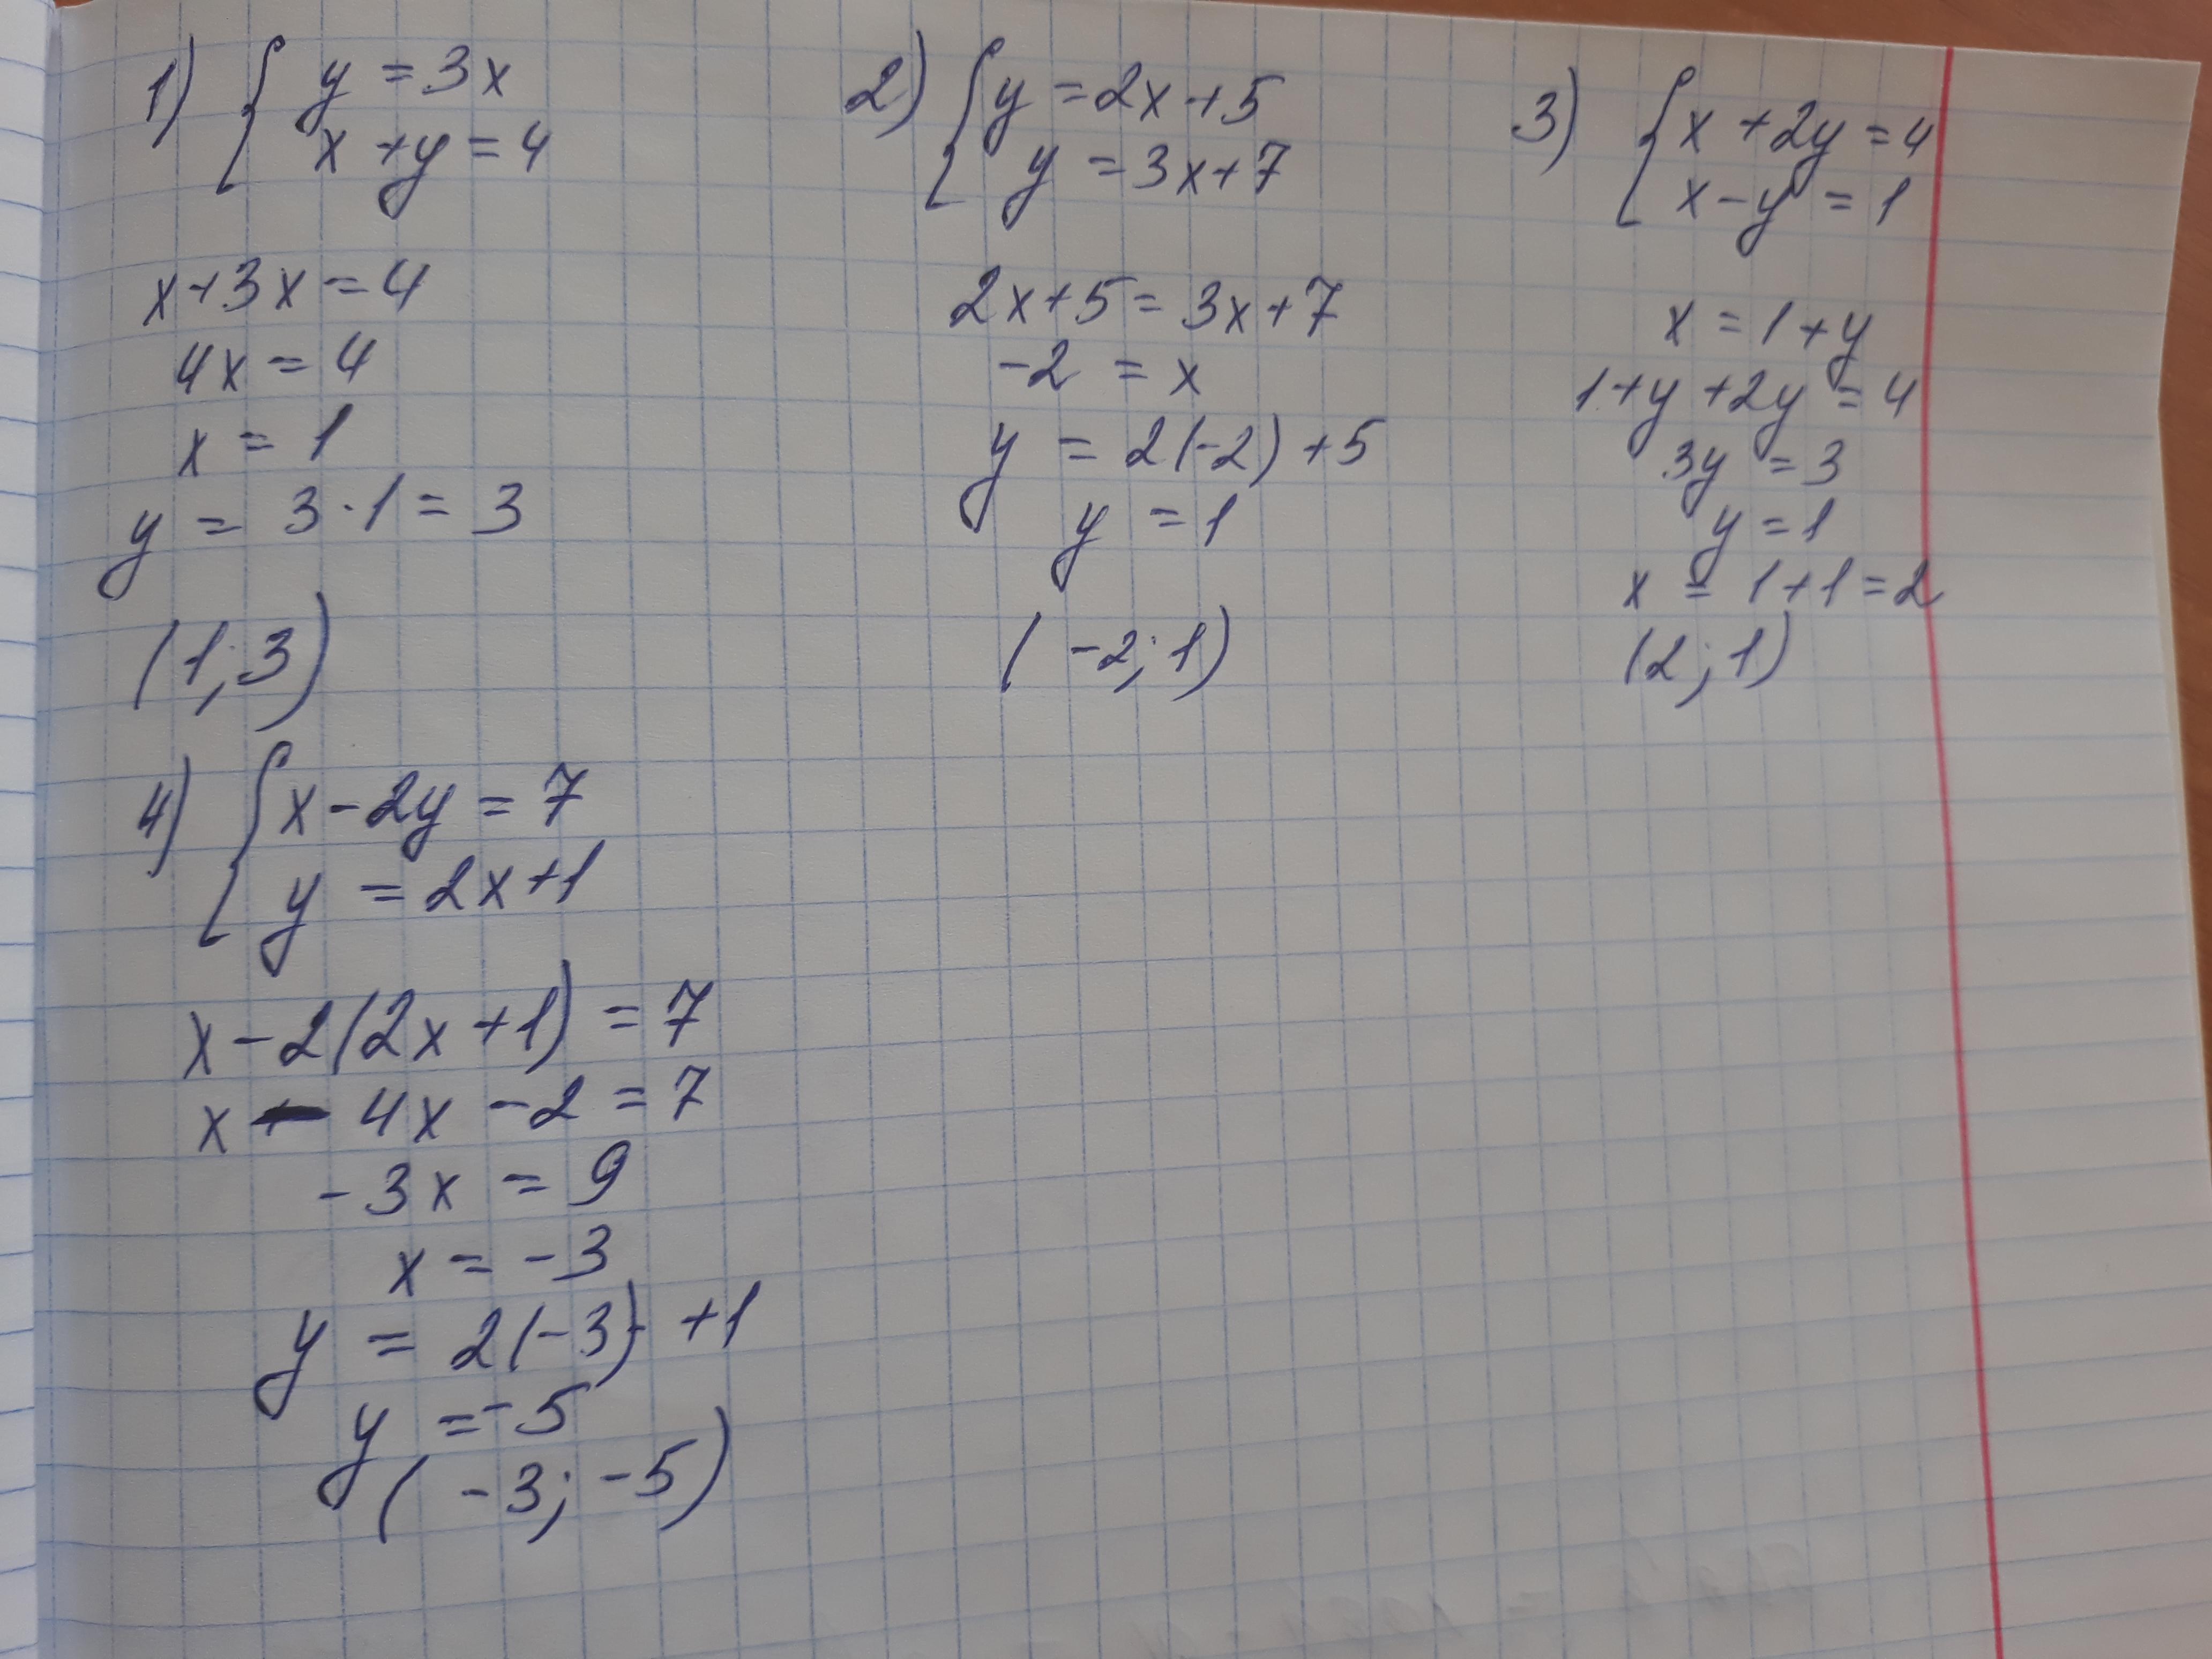 1) { y = 3x
x + y = 4
x + 3x = 4
4x = 4
x = 1
y = 3 · 1 = 3
(1; 3)
2) { y = 2x + 5
y = 3x + 7
2x + 5 = 3x + 7
-2 = x
y = 2(-2) + 5
y = 1
(-2; 1)
3) { x + 2y = 4
x - y = 1
x = 1 + y
1 + y + 2y = 4
3y = 3
y = 1
x = 1 + 1 = 2
(2; 1)
4) { x - 2y = 7
y = 2x + 1
x - 2(2x + 1) = 7
x - 4x - 2 = 7
-3x = 9
x = -3
y = 2(-3) + 1
y = -5
(-3; -5)